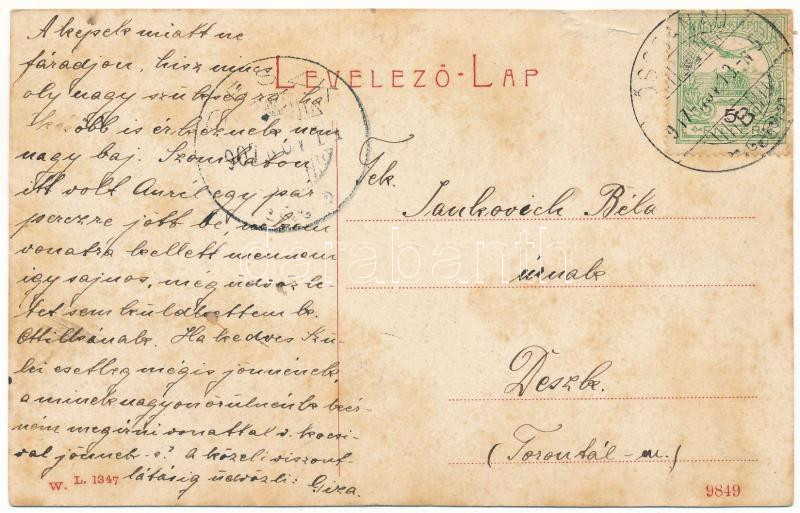 LEVELEZŐ-LAP
A képek miatt ne
fáradjon, hisz nincs
oly nagy szükség rá, ha
később is érkeznek nem
nagy baj. Szombaton
itt volt Aurél egy pár
perczre jött be, nekem
vonatra kellett mennem
így sajnos, még üdvözle-
tet sem küldhettem k.
Ottilkának. Ha kedves Szü-
lei esetleg mégis jönnének,
a minek nagyon örülnénk kér-
ném megírni vonattal v. kocsi-
val jönnek-e? A közeli viszont-
látásig üdvözli: Giza.
Tek.
Jankovich Béla
úrnak
Deszk.
(Torontál-m.)
5
FILLÉR
907 NOV
W. L. 1347
9849
darabanth